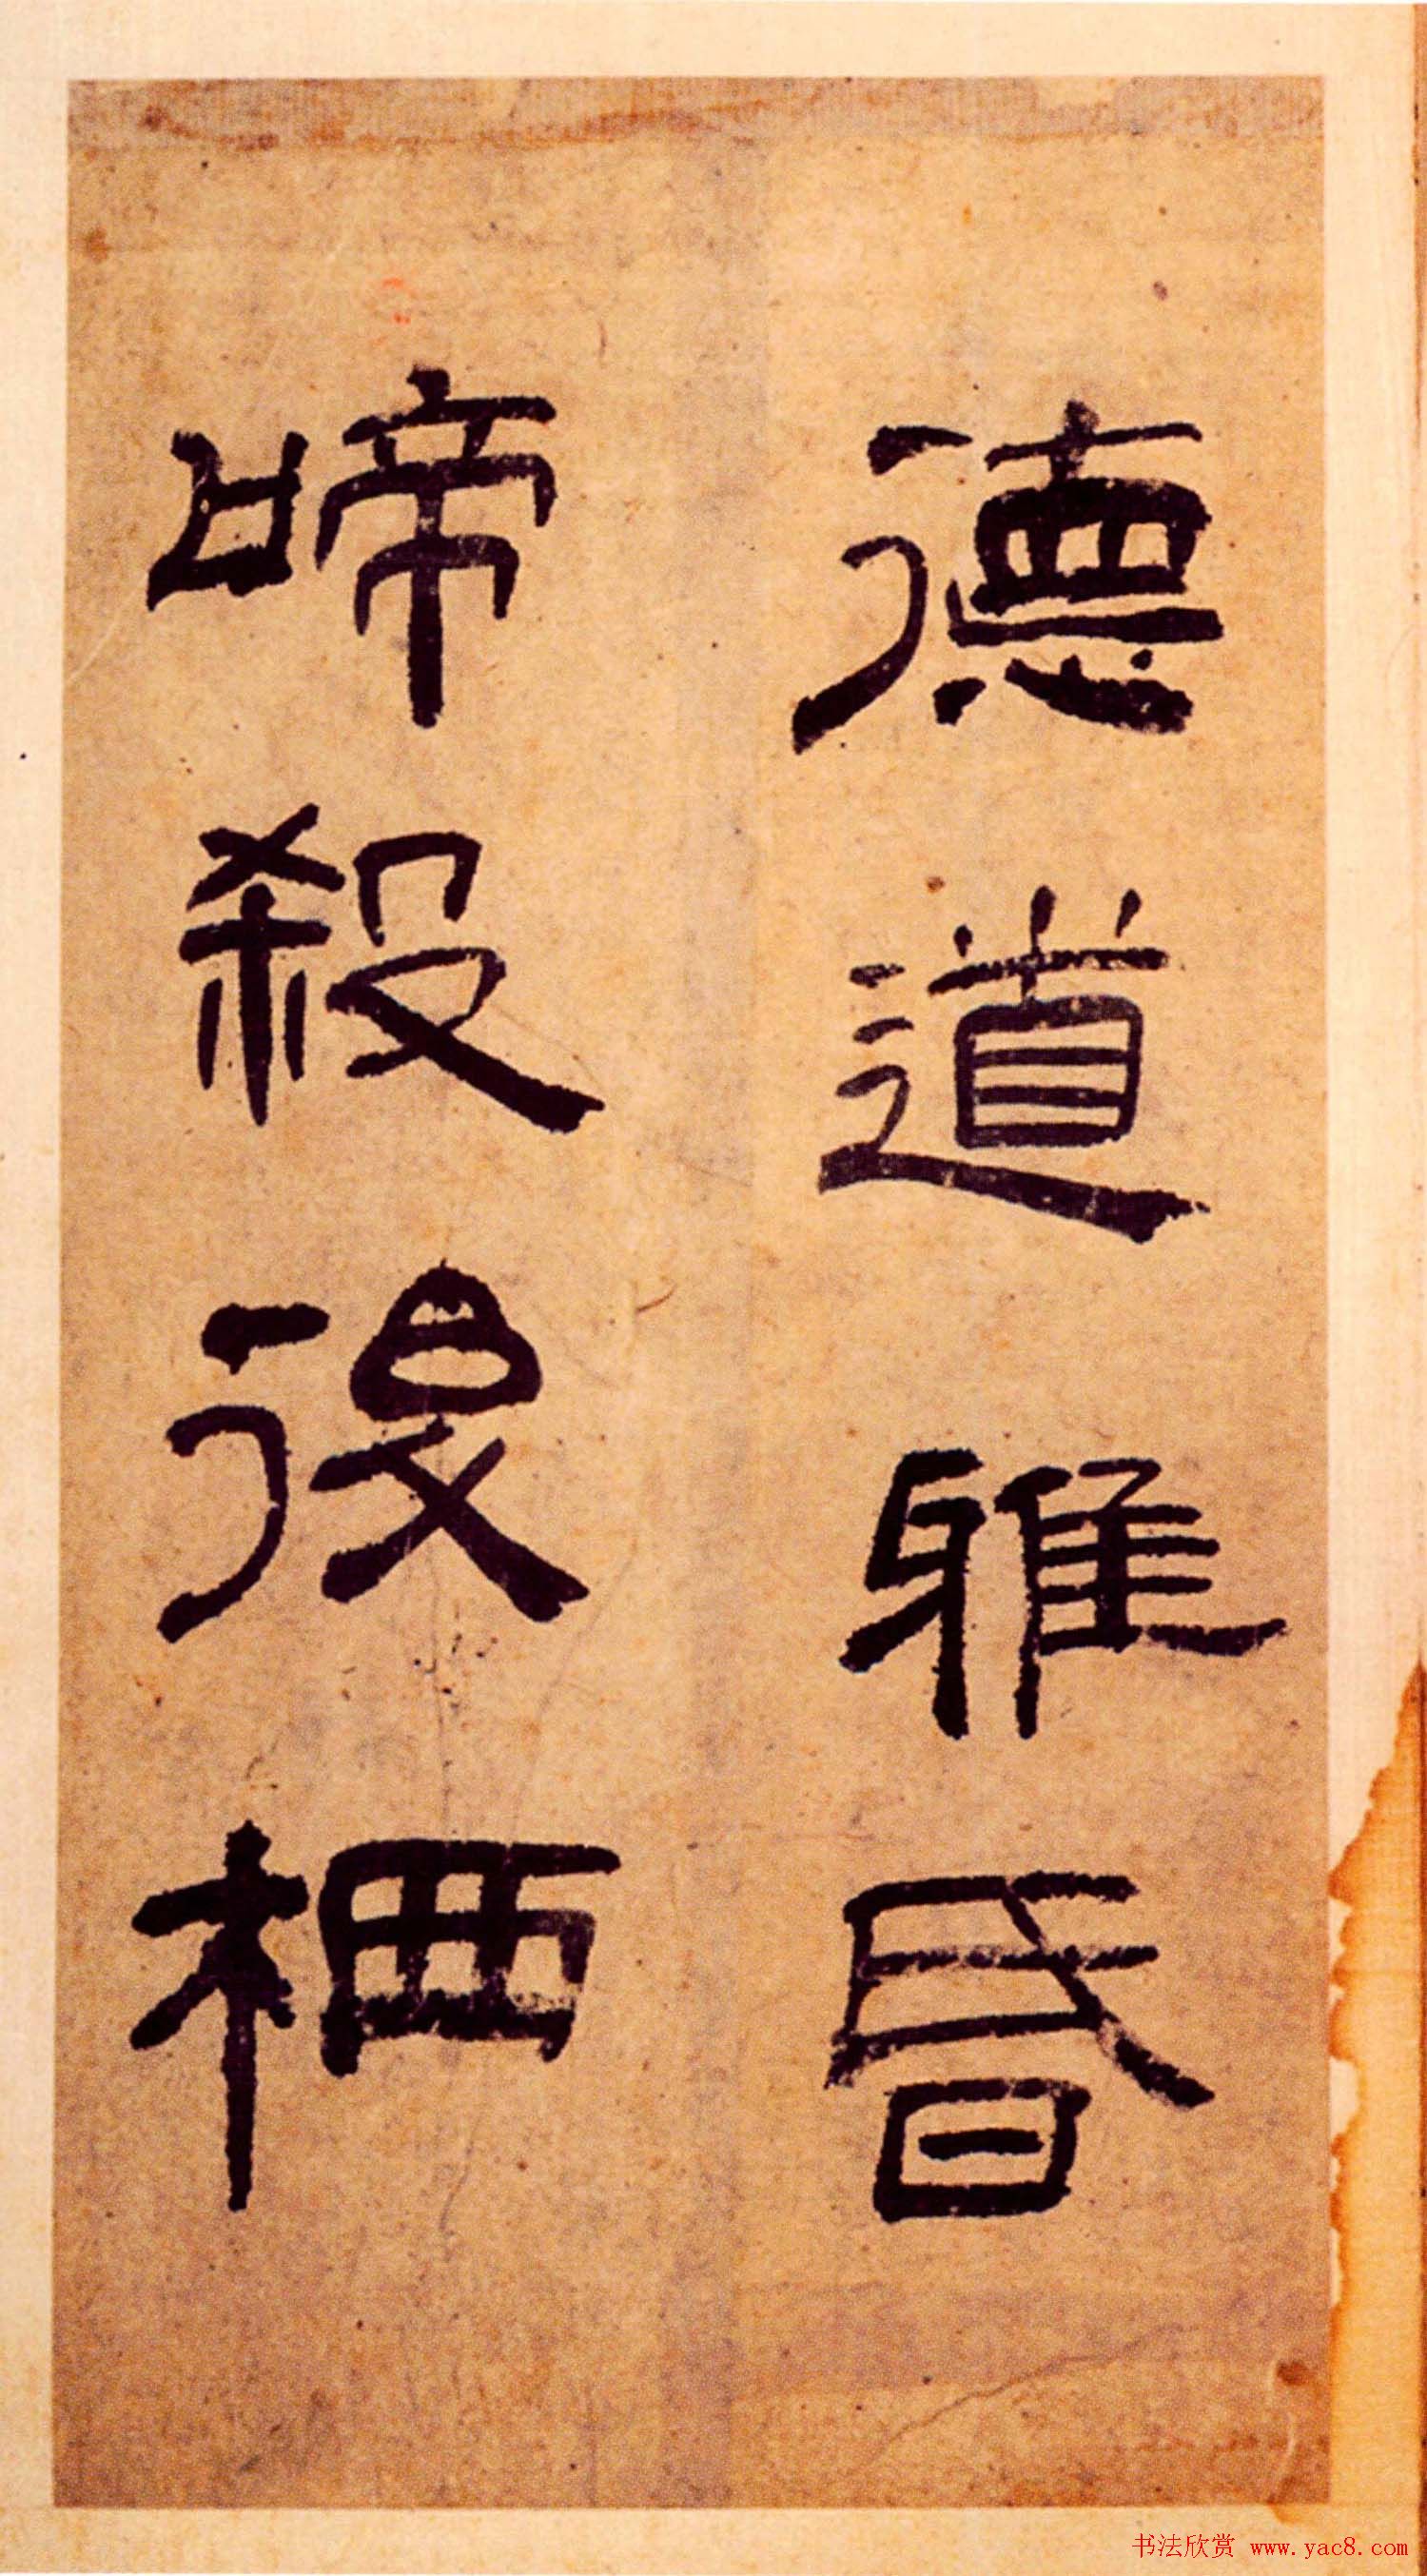 德道雅昏
啼殺後栖
书法欣赏 www.yac8.com